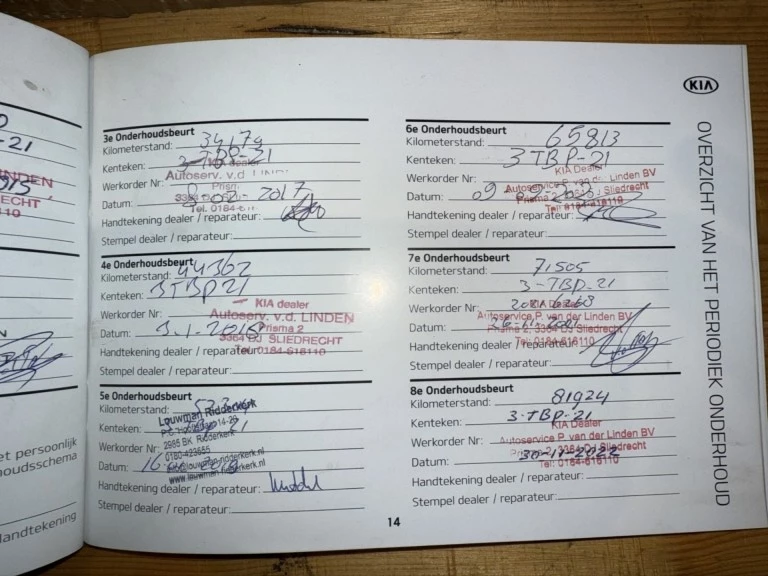 -21
LINDEN
ECHT
110
et persoonlijk
houdsschema
Handtekening
3e Onderhoudsbeurt
Kilometerstand: 34179
Kenteken: 3-TBP-21
KIA dealer
Werkorder Nr:
Autoserv. v.d
Datum: 2017
Tel. 0184-6
Handtekening dealer / reparateur:
Stempel dealer / reparateur:
4e Onderhoudsbeurt
Kilometerstand: 44362
Kenteken: 3TBP21
KIA dealer
Werkorder Nr:
Autoserv. v.d. LINDEN
Prisma 2
Datum:
3364 DJ SLIEDRECHT
Handtekening dealer / reparateur:
Tel. 0184-616110
Stempel dealer / reparateur:
5e Onderhoudsbeurt
Kilometerstand:
Louwman Ridderkerk
Kenteken: 21
2985 BK Ridderkerk
Werkorder Nr:
0180-423655
Datum:
www.louwman-ridderkerk.nl
Handtekening dealer / reparateur:
Stempel dealer / reparateur:
6e Onderhoudsbeurt
Kilometerstand: 65813
Kenteken: 3TBP-21
KIA Dealer
Werkorder Nr:
Autoservice P. van der Linden BV
Datum: 09
Prisma 2, Sliedrecht
Tel: 0184-616110
Handtekening dealer / reparateur:
Stempel dealer / reparateur:
7e Onderhoudsbeurt
Kilometerstand: 71505
Kenteken: 3-TBP-21
KIA Dealer
Werkorder Nr:
Autoservice P. van der Linden BV
Datum:
Prisma 2, 3364 DJ Sliedrecht
Tel: 0184-616110
Handtekening dealer / reparateur:
Stempel dealer / reparateur:
8e Onderhoudsbeurt
Kilometerstand: 81924
Kenteken: 3-TBP-21
KIA Dealer
Werkorder Nr:
Autoservice P. van der Linden BV
Prisma 2, 3364 DJ Sliedrecht
Datum: 30-11-2022
Tel: 0184-616110
Handtekening dealer / reparateur:
Stempel dealer / reparateur:
14
KIA
OVERZICHT VAN HET PERIODIEK ONDERHOUD